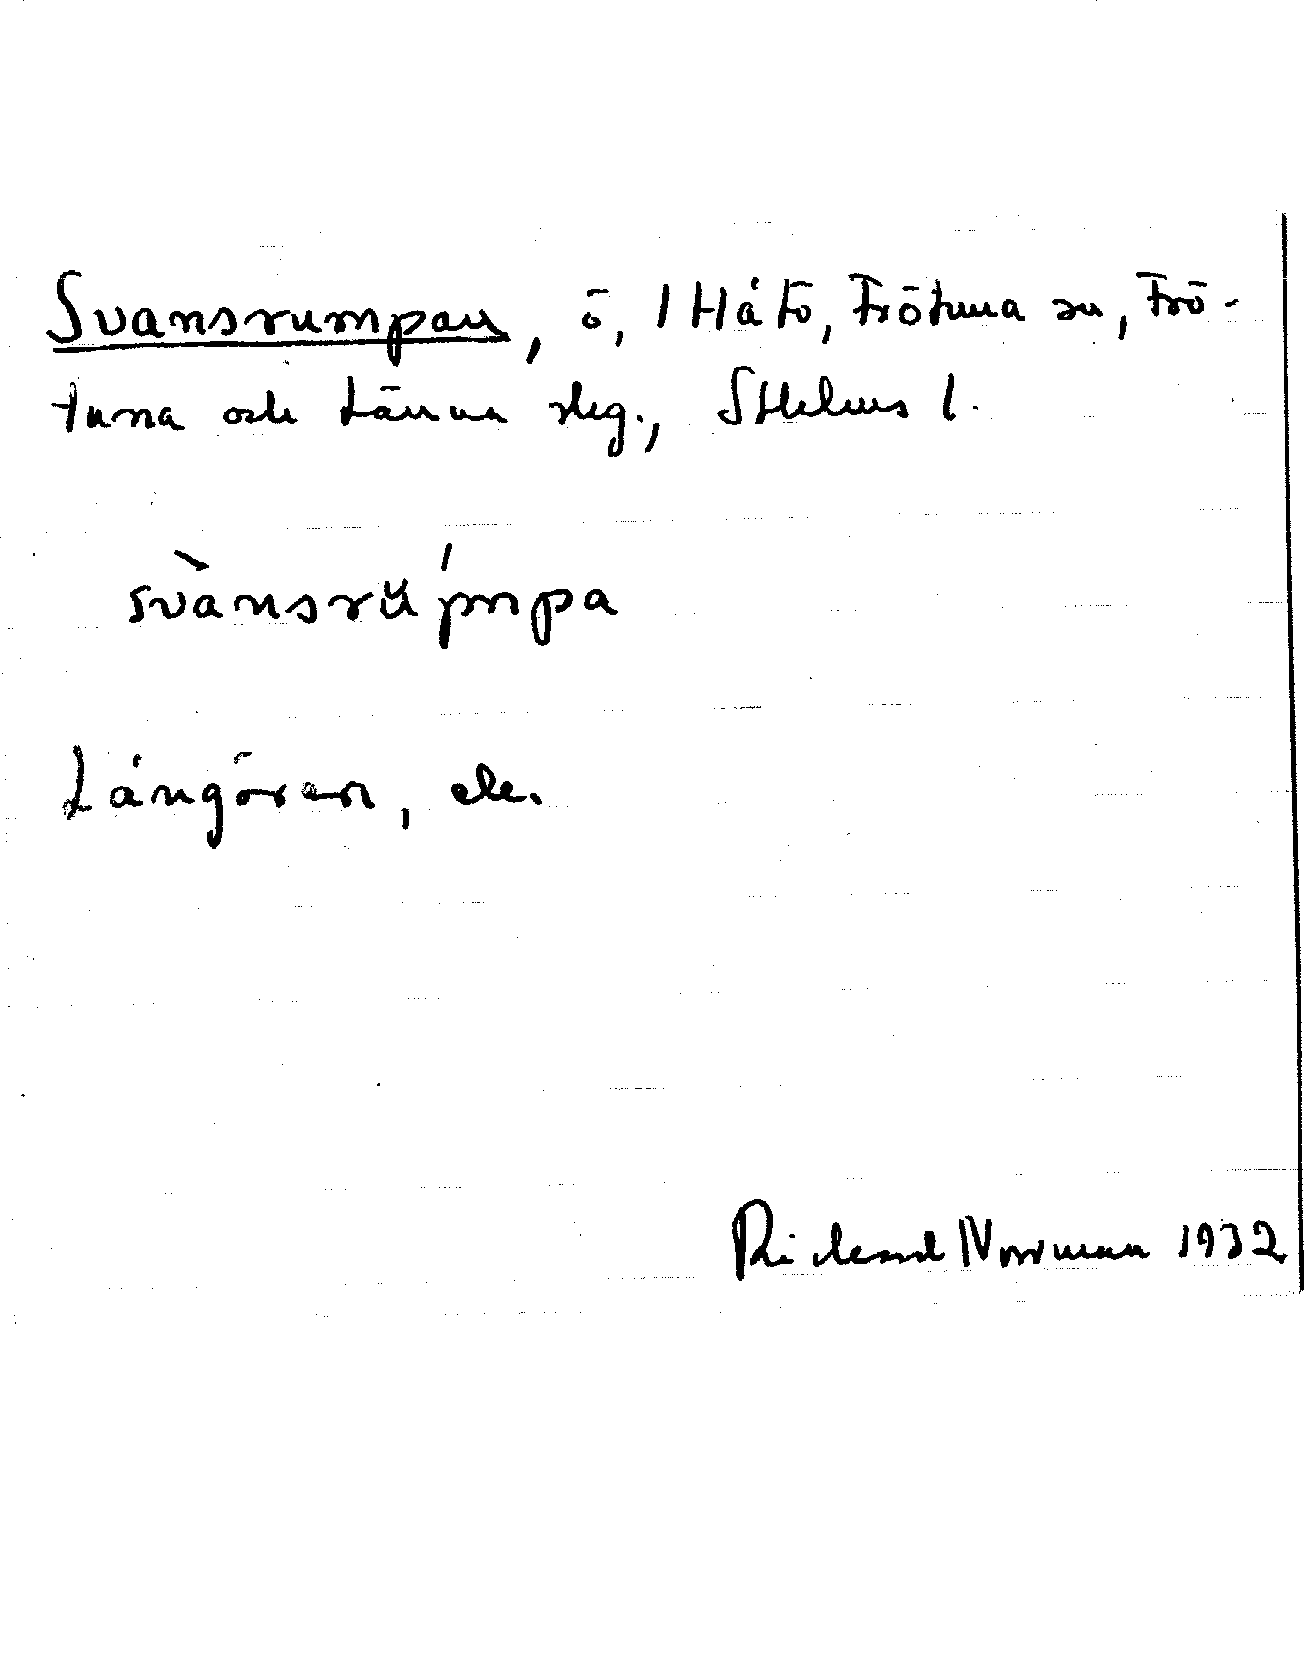 Svansrumpan, ö, 1 Håtö, Frötuna sn, Frö-
tuna och Länna slg., Sthlms l.
svànsrŭ´mpa
Långören, etc.
Rickard Norrman 1932